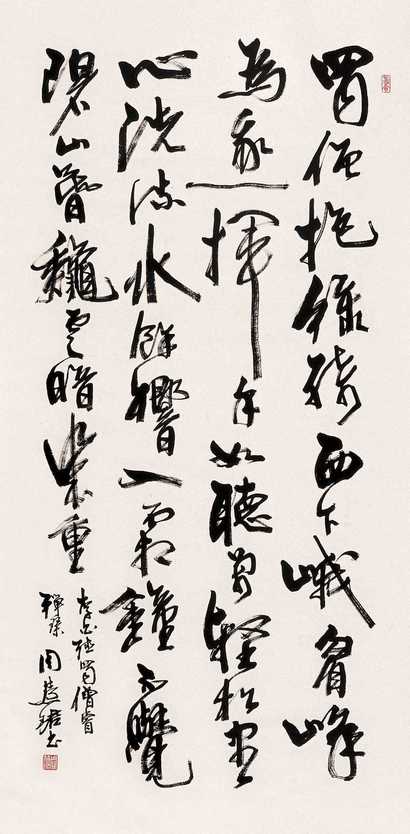 蜀僧抱綠綺西下峨眉峰
為我一揮手如聽萬壑松客
心洗流水餘響入霜鐘不覺
碧山暮龝雲暗幾重
李白聽蜀僧睿
彈琴 周慧珺書